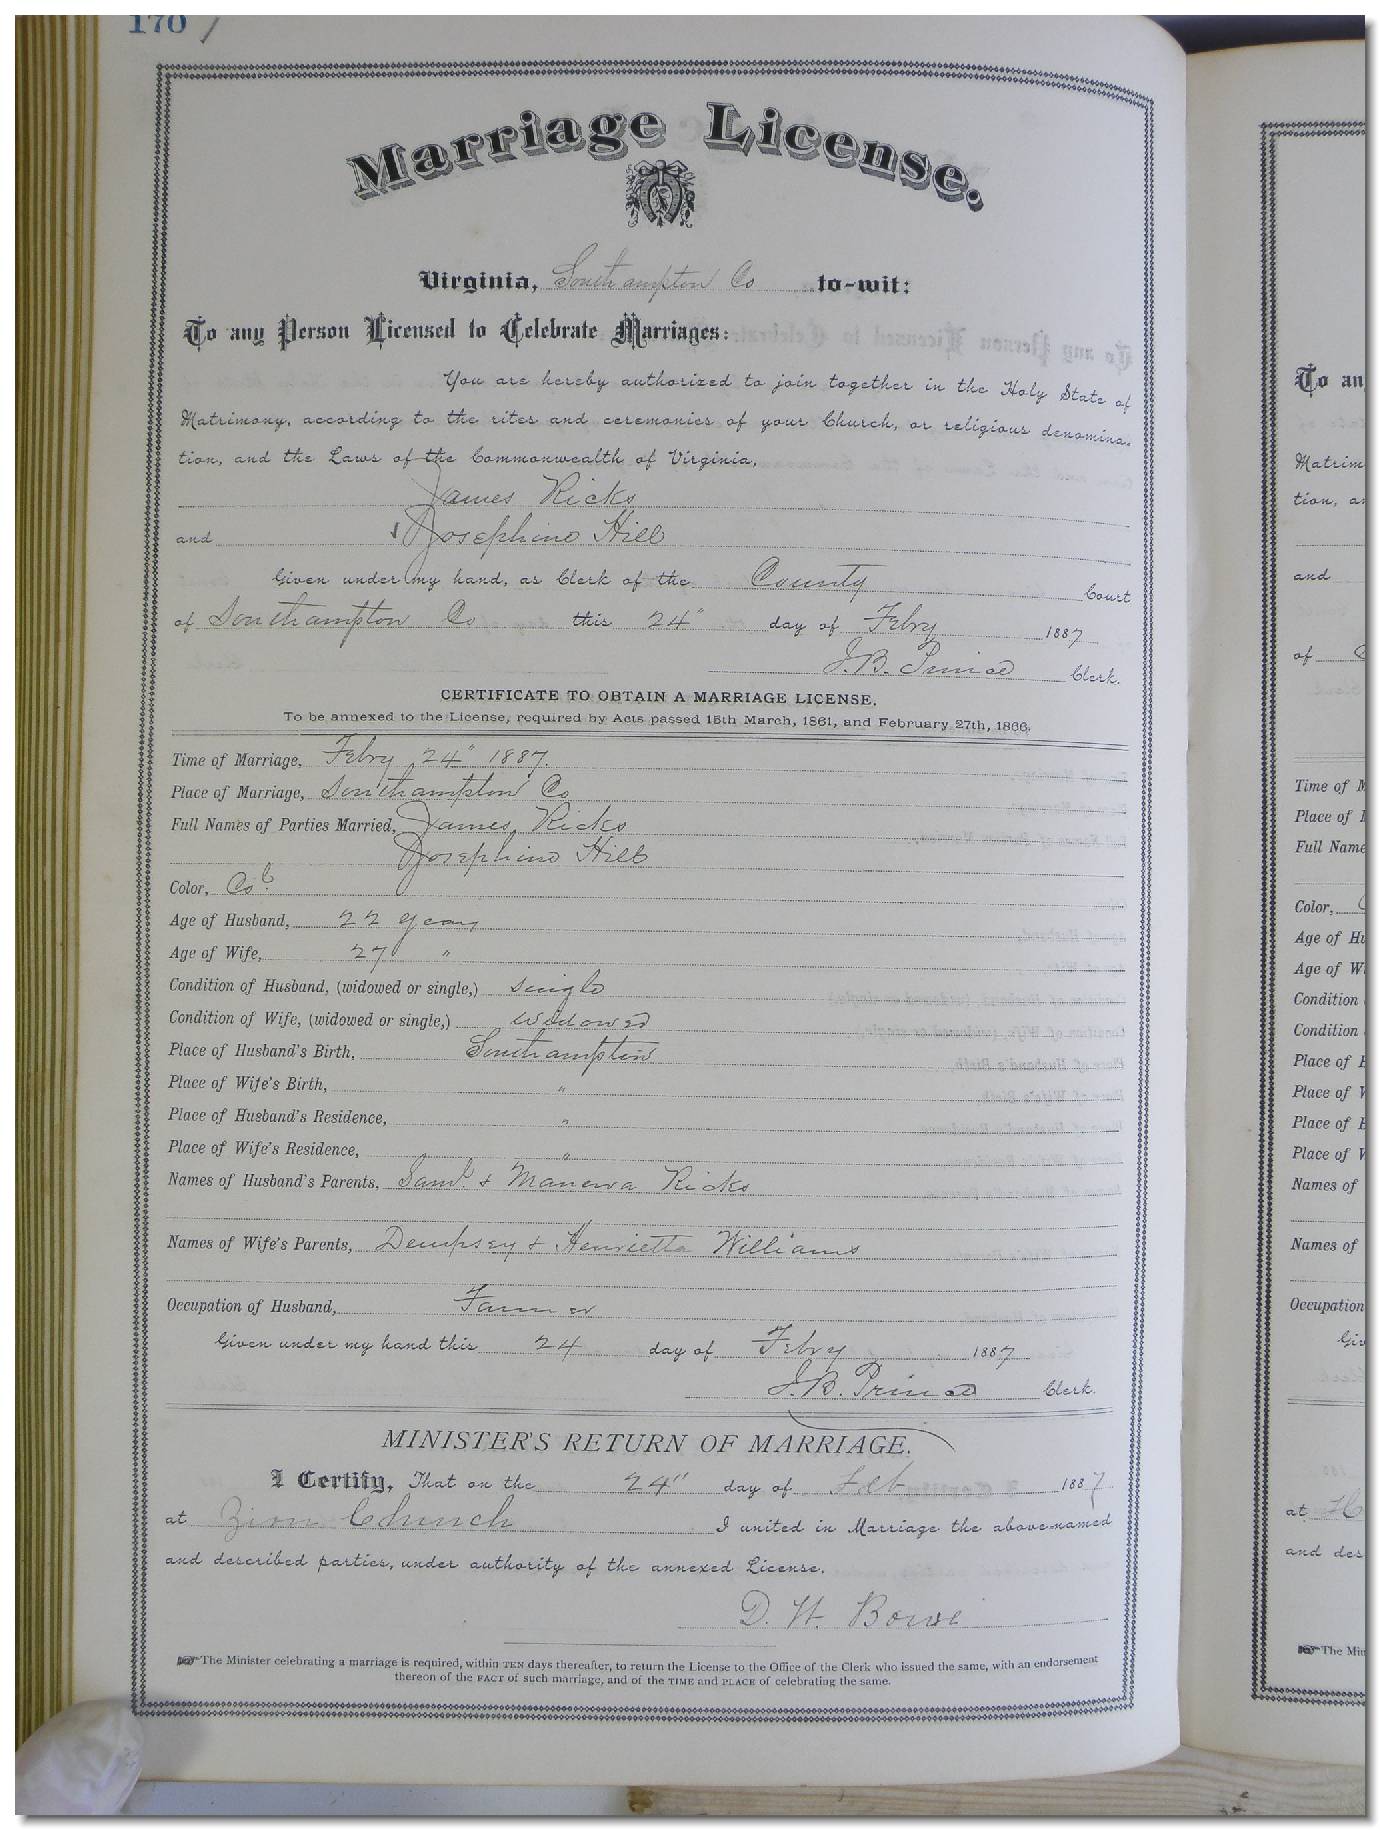 170
Marriage License.
Virginia, Southampton Co to-wit:
To any Person Licensed to Celebrate Marriages:
You are hereby authorized to join together in the Holy State of
Matrimony, according to the rites and ceremonies of your Church, or religious denomina-
tion, and the Laws of the Commonwealth of Virginia,
James Ricks
and Josephine Hill
Given under my hand, as Clerk of the County Court
of Southampton Co this 24" day of Febry 1887
J. B. Prince Clerk.
CERTIFICATE TO OBTAIN A MARRIAGE LICENSE.
To be annexed to the License, required by Acts passed 15th March, 1861, and February 27th, 1866.
Time of Marriage, Febry 24" 1887.
Place of Marriage, Southampton Co
Full Names of Parties Married, James Ricks
Josephine Hill
Color, Col.
Age of Husband, 22 years
Age of Wife, 27 "
Condition of Husband, (widowed or single,) single
Condition of Wife, (widowed or single,) widowed
Place of Husband's Birth, Southampton
Place of Wife's Birth, "
Place of Husband's Residence, "
Place of Wife's Residence, "
Names of Husband's Parents, Saml. & Manerva Ricks
Names of Wife's Parents, Dempsey & Henrietta Williams
Occupation of Husband, Farmer
Given under my hand this 24 day of Febry 1887
J. B. Prince Clerk.
MINISTER'S RETURN OF MARRIAGE.
I Certify, That on the 24" day of Feb 1887
at Zion Church I united in Marriage the above-named
and described parties, under authority of the annexed License.
D. H.
The Minister celebrating a marriage is required, within TEN days thereafter, to return the License to the Office of the Clerk who issued the same, with an endorsement
thereon of the FACT of such marriage, and of the TIME and PLACE of celebrating the same.
To an
Matrim
tion, a
and
of
Time of M
Place of
Full Name
Color,
Age of Hu
Age of W
Condition
Condition
Place of H
Place of W
Place of H
Place of W
Names of
Names of
Occupation
Giv
at
and des
The Min